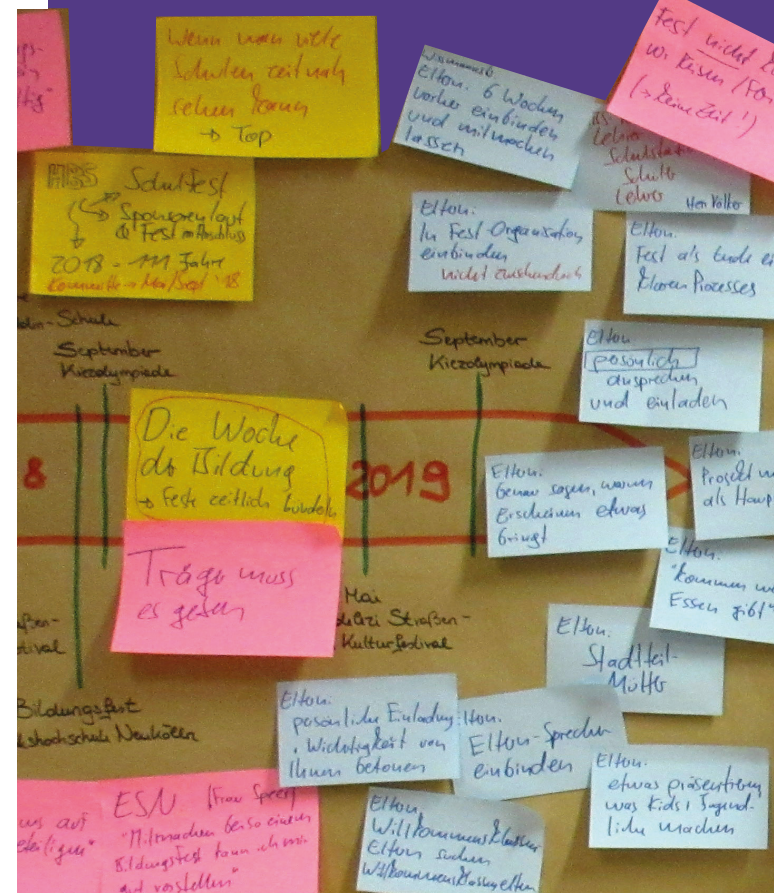 Wenn man viele
Schulen zeitnah
sehen kann
→ Top
Eltern: 6 Wochen
vorher einbinden
und mitmachen
lassen
Fest nicht
(→ keine Zeit!)
Lehrer
Schule
Lehrer
Herr Völker
HBS Schulfest
Sponsorenlauf
& Fest im Anschluss
2018 - 111 Jahre
Mai/Sept '18
Eltern:
In Fest-Organisation
einbinden
nicht
Eltern:
Fest als Ende
klaren Prozesses
Schule
September
Kiezolympiade
September
Kiezolympiade
Eltern
persönlich
ansprechen
und einladen
Die Woche
der Bildung
→ Feste zeitlich bündeln
8
2019
Eltern:
Genau sagen, warum
Erscheinen etwas
bringt
Eltern:
Projekt
als Haup
Träger muss
es geben
Eltern:
"Kommen
Essen gibt"
Mai
Straßen-
Kulturfestival
Eltern:
Stadtteil-
Mütter
Bildungsfest
kshochschule Neukölln
Eltern:
persönliche Einladung
, Wichtigkeit von
Ihnen betonen
Eltern-Sprecher
einbinden
Eltern:
etwas präsentieren
was Kids / Jugend-
liche machen
ESN:
"Mitmachen bei so einem
Bildungsfest kann ich mir
gut vorstellen"
Eltern:
Willkommensklassen
Eltern suchen
Willkommensklasseneltern